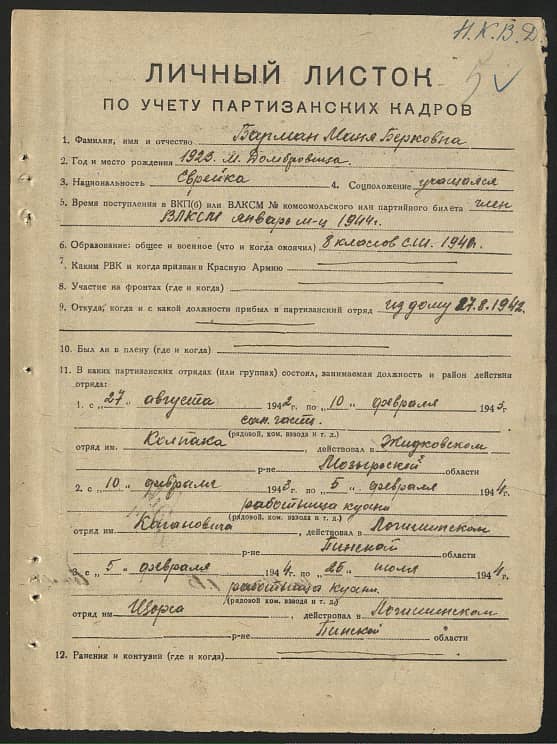 Н.К.В.Д.
ЛИЧНЫЙ ЛИСТОК
ПО УЧЕТУ ПАРТИЗАНСКИХ КАДРОВ
1. Фамилия, имя и отчество Барман Маня Берковна
2. Год и место рождения 1923. М. Домбровица.
3. Национальность еврейка 4. Соцположение учащаяся
5. Время поступления в ВКП(б) или ВЛКСМ № комсомольского или партийного билета член
ВЛКСМ январь м-ц 1944г.
6. Образование: общее и военное (что и когда окончил) 8 классов с.ш. 1940г.
7. Каким РВК и когда призван в Красную Армию
8. Участие на фронтах (где и когда)
9. Откуда, когда и с какой должности прибыл в партизанский отряд из дому 27.8.1942.
10. Был ли в плену (где и когда)
11. В каких партизанских отрядах (или группах) состоял, занимаемая должность и район действия
отряда:
1. с „27“ августа 1942г. по „10“ февраля 1943г
часть.
(рядовой, ком. взвода и т. д.)
отряд им. Колпака, действовал в Житковском
р-не Мозырской области
2. с „10“ февраля 1943. по „5“ февраля 1944.
работница кухни
(рядовой, ком. взвода и т. д.)
отряд им. Кагановича, действовал в Логишинском
р-не Пинской области
3. с „5“ февраля 1944г. по „25“ июля 1944.
работница кухни.
(рядовой, ком. взвода и т. д.)
отряд им. Щорса, действовал в Логишинском
р-не Пинской области
12. Ранения и контузии (где и когда)